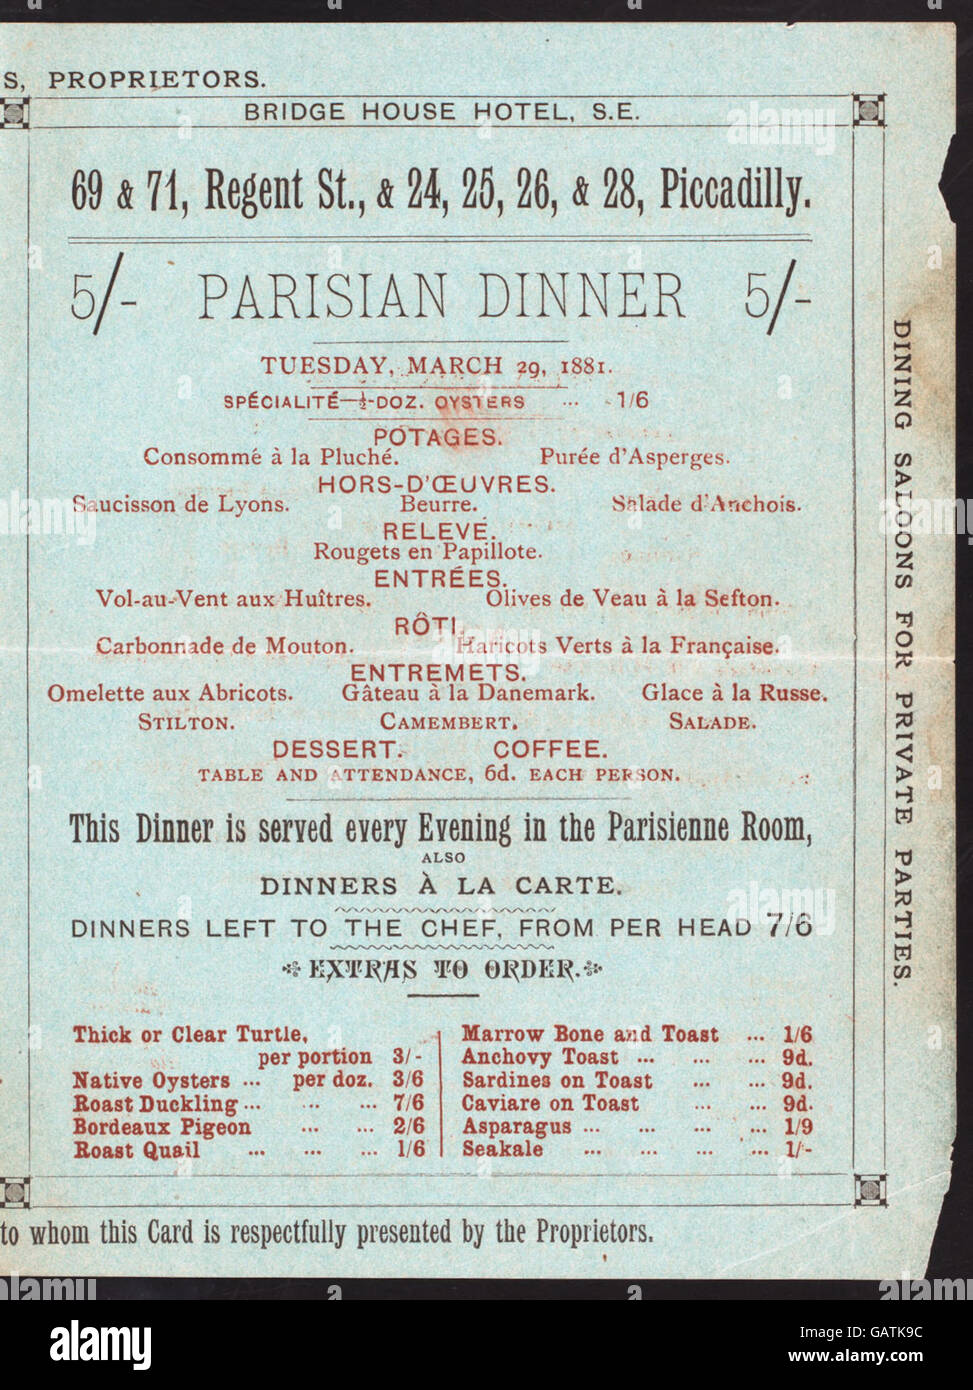 S, PROPRIETORS.
BRIDGE HOUSE HOTEL, S.E.
69 & 71, Regent St., & 24, 25, 26, & 28, Piccadilly.
5/- PARISIAN DINNER 5/-
TUESDAY, MARCH 29, 1881.
SPÉCIALITÉ—½-DOZ. OYSTERS ... 1/6
POTAGES.
Consommé à la Pluché. Purée d'Asperges.
HORS-D'ŒUVRES.
Saucisson de Lyons. Beurre. Salade d'Anchois.
RELEVÉ.
Rougets en Papillote.
ENTRÉES.
Vol-au-Vent aux Huîtres. Olives de Veau à la Sefton.
RÔTI.
Carbonnade de Mouton. Haricots Verts à la Française.
ENTREMETS.
Omelette aux Abricots. Gâteau à la Danemark. Glace à la Russe.
STILTON. CAMEMBERT. SALADE.
DESSERT. COFFEE.
TABLE AND ATTENDANCE, 6d. EACH PERSON.
This Dinner is served every Evening in the Parisienne Room,
ALSO
DINNERS À LA CARTE.
DINNERS LEFT TO THE CHEF, FROM PER HEAD 7/6
EXTRAS TO ORDER.
Thick or Clear Turtle,
per portion 3/-
Native Oysters ... per doz. 3/6
Roast Duckling ... ... ... 7/6
Bordeaux Pigeon ... ... 2/6
Roast Quail ... ... ... 1/6
Marrow Bone and Toast ... 1/6
Anchovy Toast ... ... ... 9d.
Sardines on Toast ... ... 9d.
Caviare on Toast ... ... 9d.
Asparagus ... ... ... ... 1/9
Seakale ... ... ... ... 1/-
to whom this Card is respectfully presented by the Proprietors.
DINING SALOONS FOR PRIVATE PARTIES.
alamy
alamy
Image ID: GATK9C
www.alamy.com